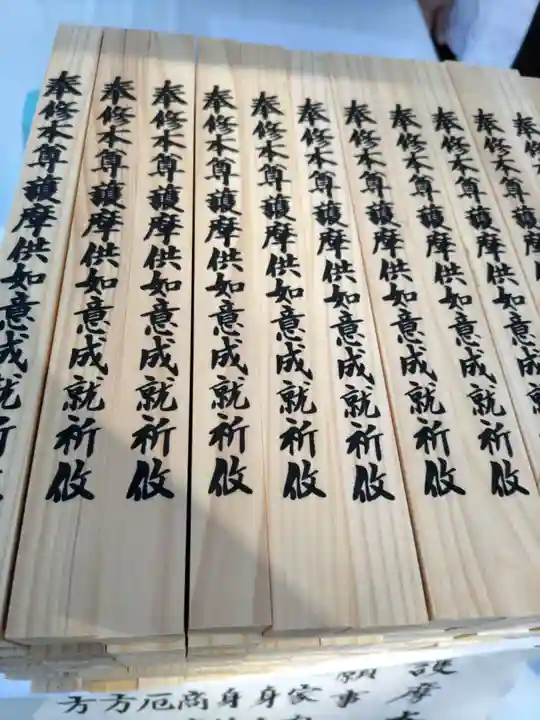 奉修本尊護摩
奉修本尊護摩供如意成就
奉修本尊護摩供如意成就祈攸
奉修本尊護摩供如意成就祈攸
奉修本尊護摩供如意成就祈攸
奉修本尊護摩供如意成就祈攸
奉修本尊護摩供如意成就祈攸
奉修本尊護摩供如意成就祈攸
奉修本尊護摩供如意成就祈攸
奉修本尊護摩供如意成就祈
護摩
願事
家
身
身
商
厄
方
方